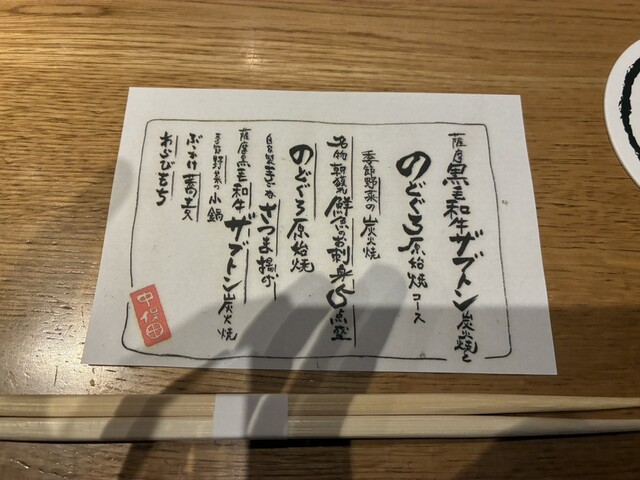 薩摩黒毛和牛ザブトン炭火焼と
のどぐろ原始焼コース
季節野菜の炭火焼
名物朝獲れ鮮魚のお刺身5点盛
のどぐろ原始焼
自家製さつま揚げ
薩摩黒毛和牛ザブトン炭火焼
季節野菜の小鍋
ぶっかけ蕎麦
わらびもち